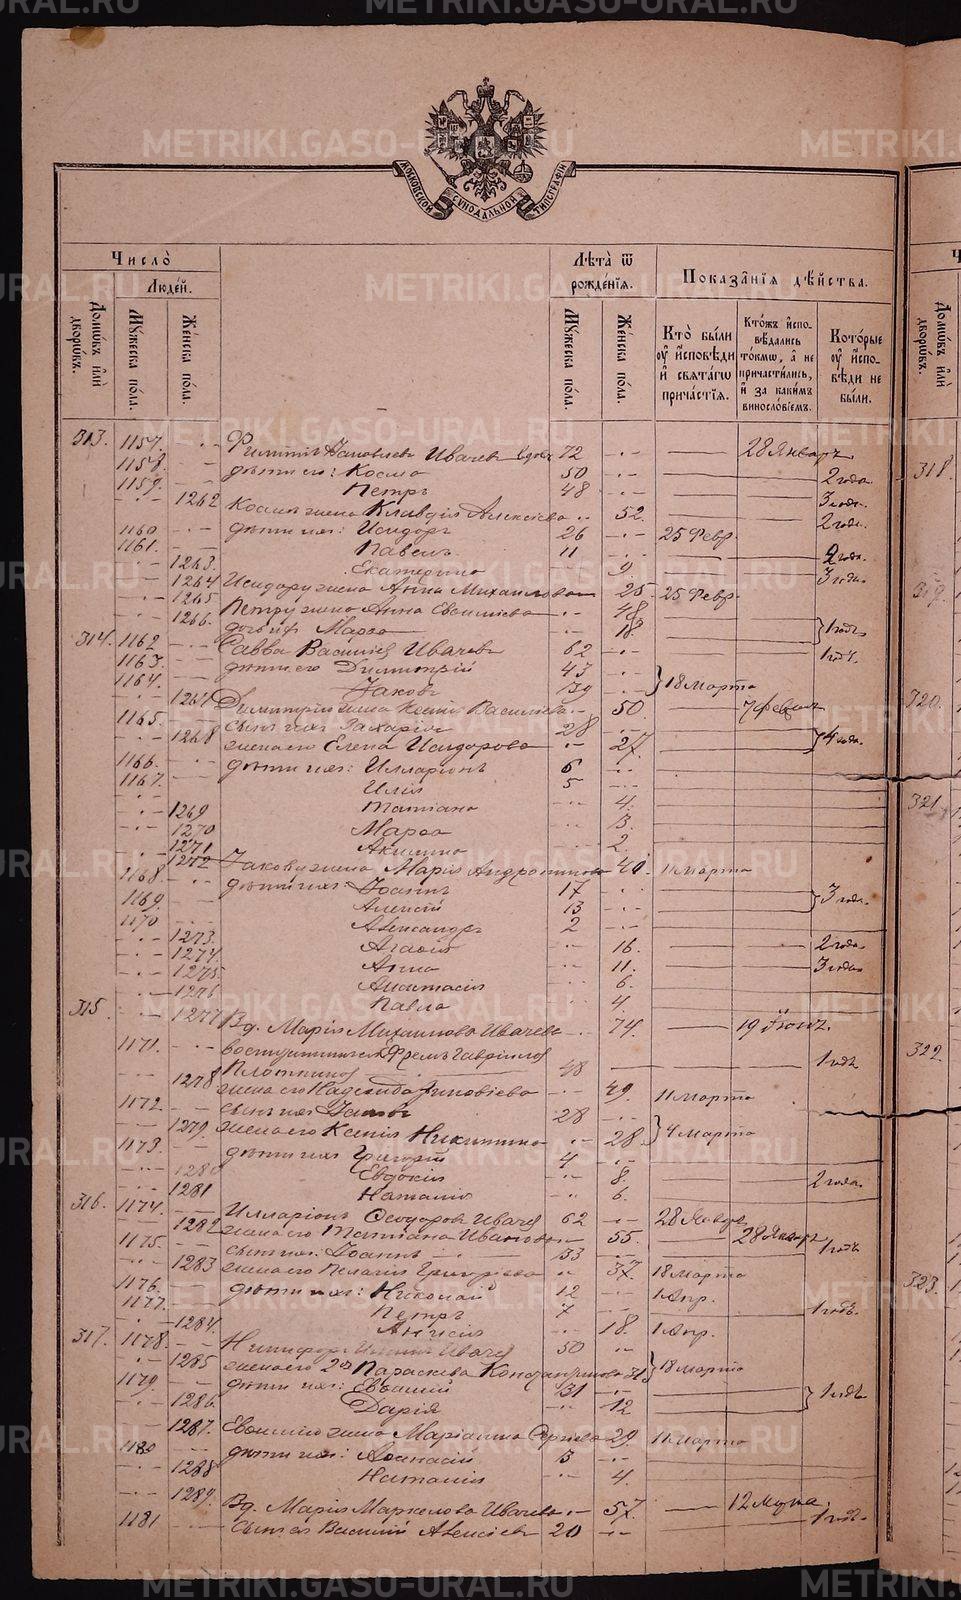 МОСКОВСКОЙ СѴНОДАЛЬНОЙ ТИПОГРАФІИ
Число̀
Людей.
Домѡвъ и҆лѝ дворѡвъ.
Мꙋжеска пола.
Женска пола.
Лѣта̀ ѿ рожденїѧ.
Мꙋжеска пола.
Женска пола.
Показанїѧ дѣйства.
Кто̀ были ᲂу҆ и҆сповѣди и҆ свѧтагѡ причастїѧ.
Ктожъ и҆сповѣдались токмѡ, а҆ не причастились, и҆ за какимъ винословїемъ.
Которые ᲂу҆ и҆сповѣди не были.
313. 1157. Филиппъ Ивачевъ вдовъ 72 28 Январь
1158. дѣти его: Косма 50 2 года.
1159. Петръ 48 3 года.
1262 Космы жена Клавдія Алексіева 52. 2 года.
1160 дѣти ихъ: Исидоръ 26 25 Февр.
1161. Павелъ 11 2 года.
1263. Екатерина 9. 3 года.
1264 Исидору жена Анна Михаилова 25. 25 Февр.
1265 Петру жена Анна 48
1266. дочь их Марѳа 18. 1 годъ.
314. 1162 Савва Василіев Ивачевъ 62 1 годъ.
1163. дѣти его Димитрій 43
1164. Іаковъ 39 18 Марта
1267 Димитрію жена Ксенія Василіева 50. 7 Февраля
1165. сынъ ихъ Захарія 28
1268 жена его Елена Исидорова 27. 4 года.
1166. дѣти ихъ: Илларіонъ 6
1167. Илія 5
1269 Татіана 4.
1270 Марѳа 3.
1271 Акилина 2.
1272 Іакову жена Марія 40. 11 Марта
1168. дѣти ихъ: Іоаннъ 17
1169. Алексій 13 3 года.
1170 Александръ 2
1273. Агаѳія 16. 2 года.
1274. Анна 11. 3 года.
1275. Анастасія 6.
1276 Павла 4.
315. 1277 Вд. Марія Михаилова Ивачева 74. 19 Іюнь.
1171. воспитанникъ Ефремъ Гавріилов 1 годъ
Плотников 48
1278 жена его Надежда Зиновіева 49. 11 Марта
1172. сынъ ихъ Іаковъ 28
1279. жена его Ксенія Никитина 28. 4 Марта
1173. дѣти ихъ Григорій 4
1280 Евдокія 8. 2 года.
1281 Наталія 6.
316. 1174. Илларіонъ Ѳеодоров Ивачев 62 28 Январь
1282 жена его Татіана Иванова 55. 28 Январь
1175. сынъ их: Іоаннъ 33 1 годъ
1283. жена его Пелагія Григоріева 37. 18 Марта
1176. дѣти ихъ: Николай 12 1 Апр.
1177. Петръ 7 1 годъ.
1284. Анисія 18. 1 Апр.
317. 1178. Никифоръ Ивачев 50
1285 жена его 2я Параскева Константинова 31 18 Марта
1179. дѣти ихъ: Евѳимій 31
1286. Дарія 12 1 годъ
1287. Евѳимію жена Маріанна Сергіева 29. 11 Марта
1180 дѣти ихъ: Аѳанасій 3
1288 Наталія 4.
1289. Вд. Марія Маркелова Ивачева 57. 12
1181 сынъ ея Василій Алексіев 20 1 годъ.
318.
319.
320.
321.
322.
323.
METRIKI.GASO-URAL.RU